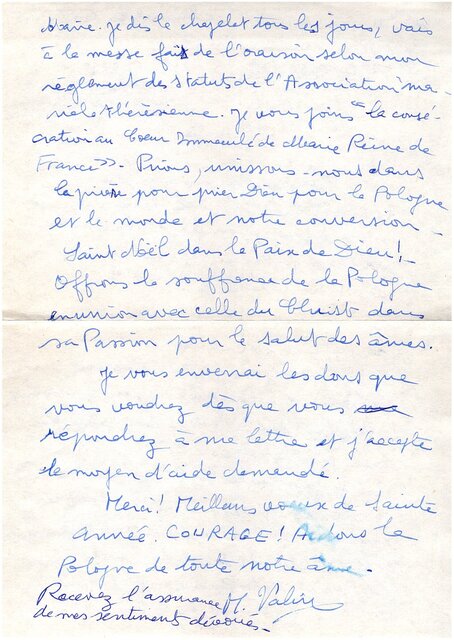 Marie. je dis le chapelet tous les jours, vais
à la messe fais de l'oraison selon mon
règlement des statuts de l'Association ma-
riale thérésienne. Je vous joins "la consé-
cration au Coeur Immaculé de Marie Reine de
France". Prions, unissons-nous dans
la prière pour prier Dieu pour la Pologne
et le monde et notre conversion -
Saint Noël dans la Paix de Dieu!
Offrons la souffrance de la Pologne
en union avec celle du Christ dans
sa Passion pour le salut des âmes.
Je vous enverrai les dons que
vous voudrez dès que vous
répondrez à ma lettre et j'accepte
le moyen d'aide demandé.
Merci! Meilleurs voeux de Sainte
Année. COURAGE! Aidons la
Pologne de toute notre âme -
Recevez l'assurance M.
de mes sentiments dévoués -